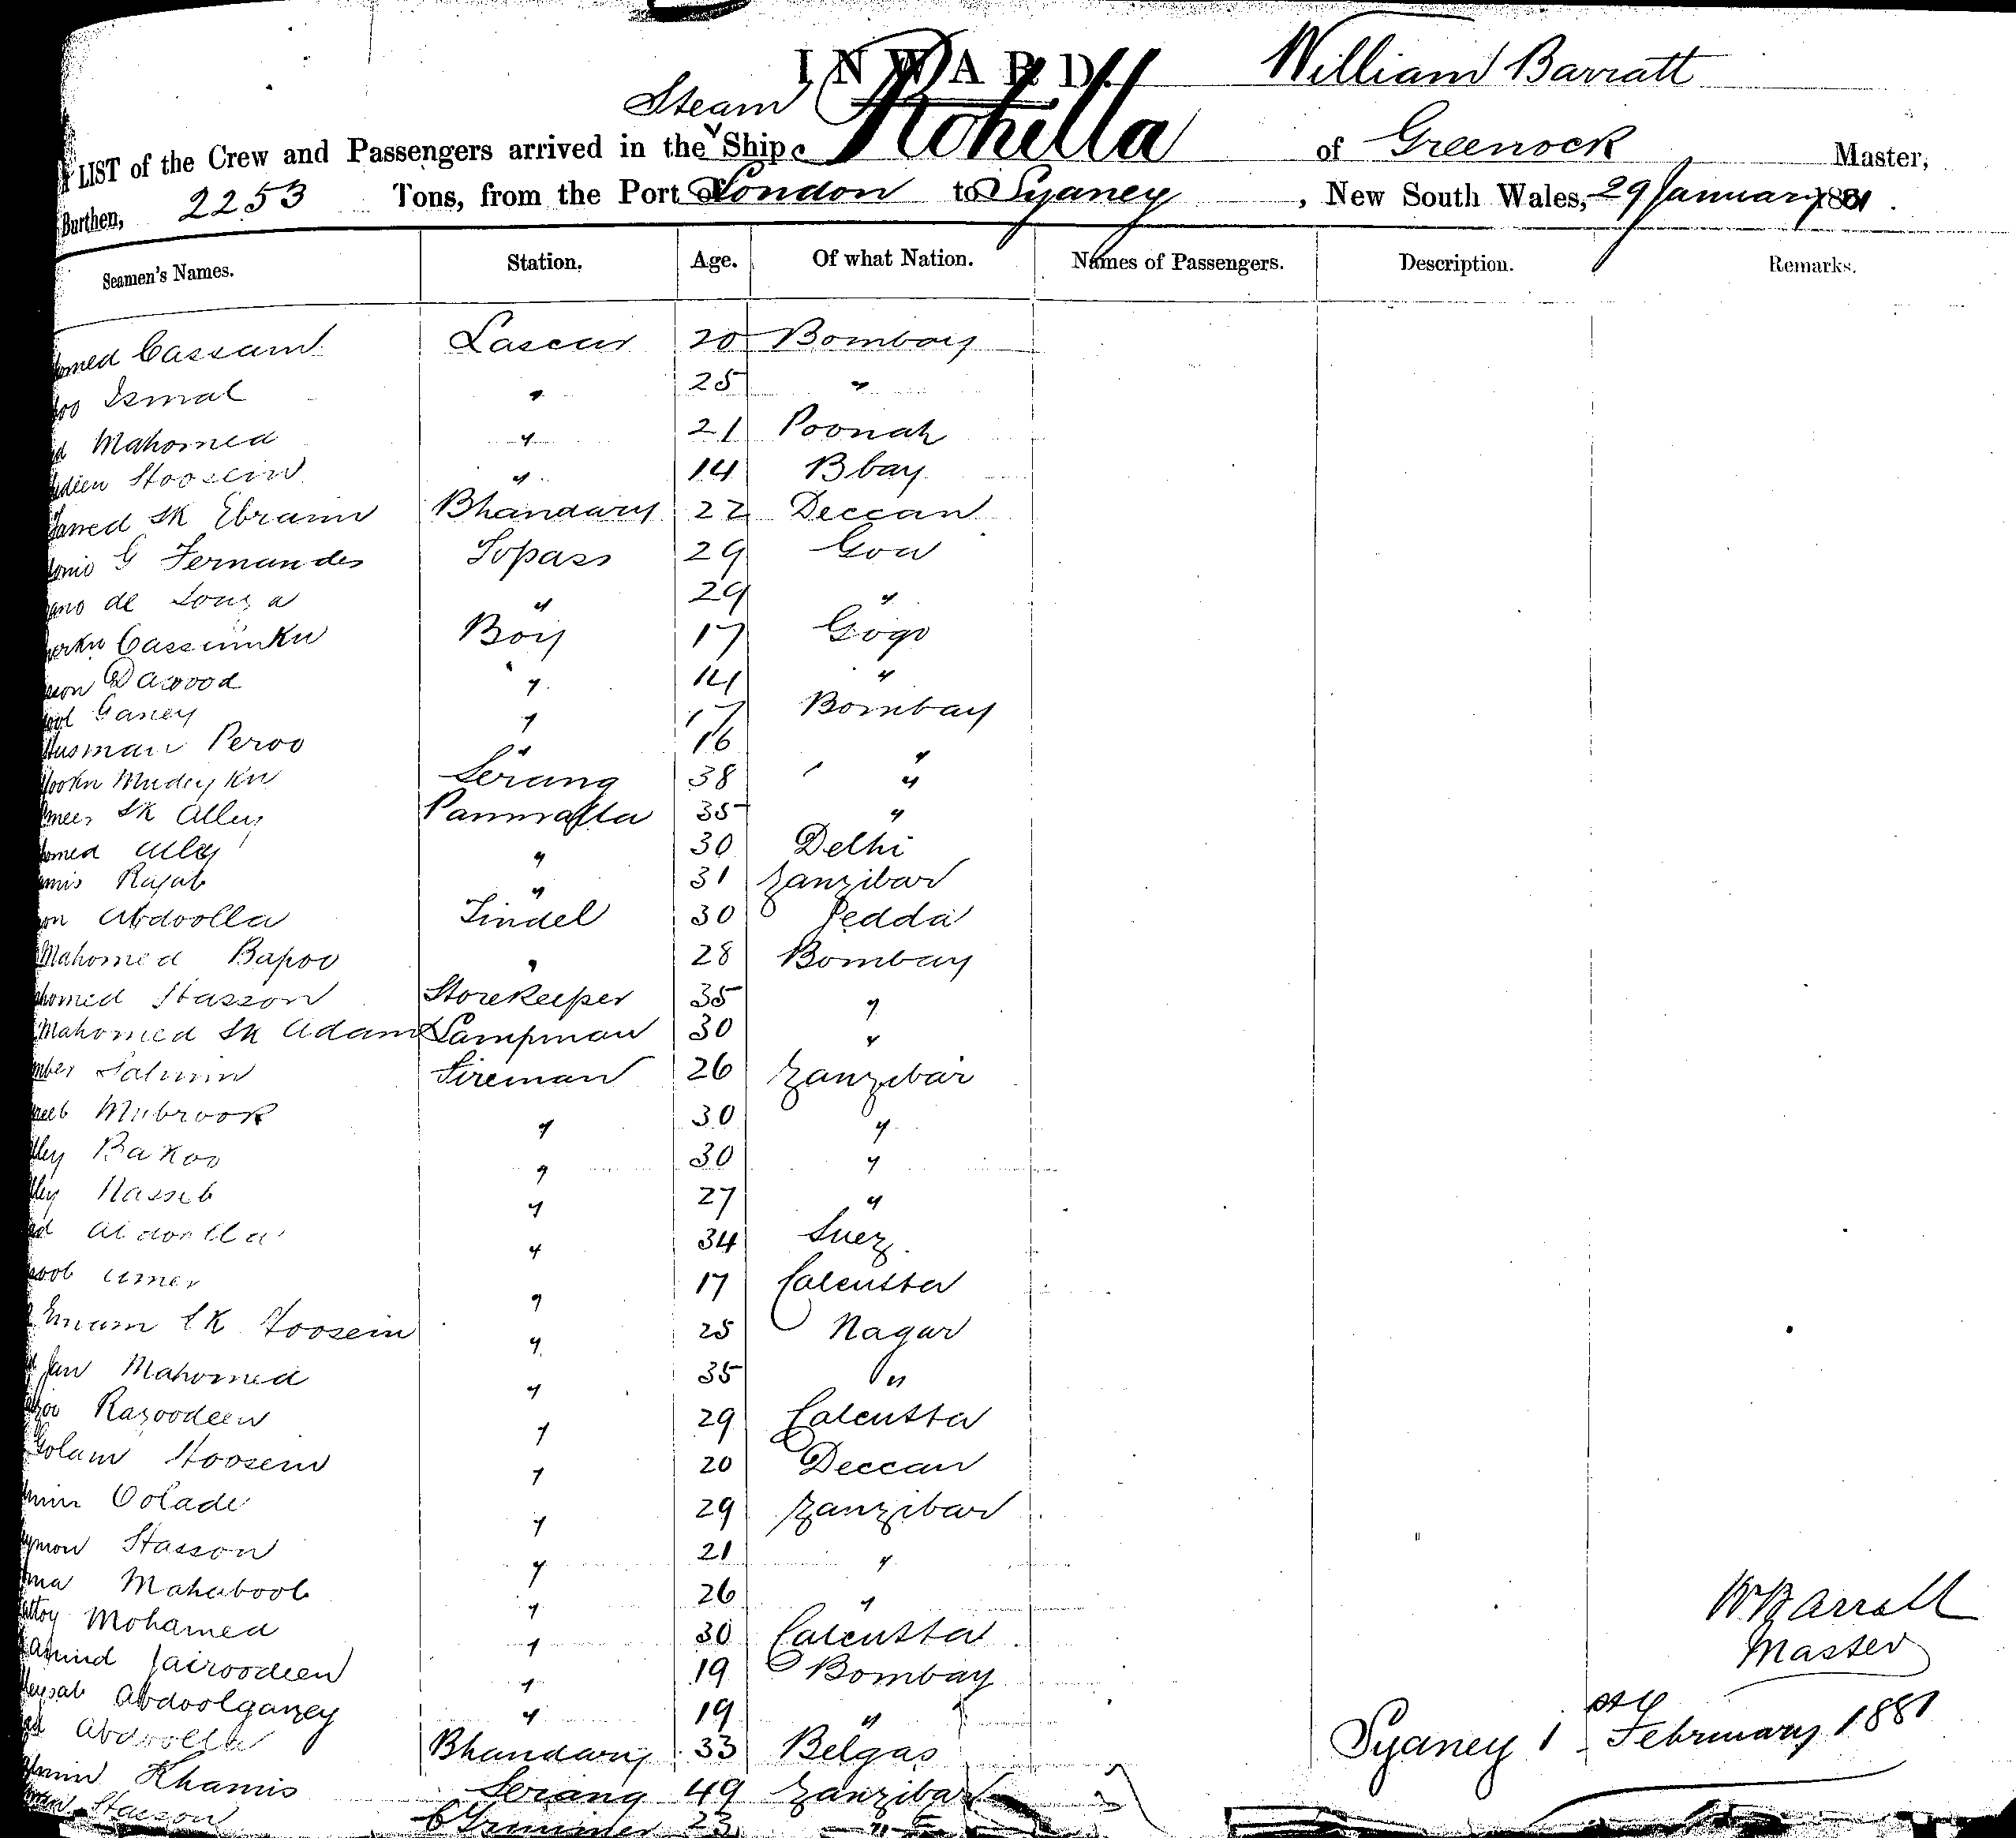 INWARD.
William Barratt
Steam
LIST of the Crew and Passengers arrived in the Ship Rohilla of Greenock Master,
Burthen, 2253 Tons, from the Port of London to Sydney, New South Wales, 29 January 1881.
Seamen's Names. Station. Age. Of what Nation. Names of Passengers. Description. Remarks.
omed Cassam Lascar 20 Bombay
oo Ismal " 25 "
d Mahomed " 21 Poonah
dien Hoosein " 14 Bbay
amed SK Ebraim Bhandary 22 Deccan
onio G Fernandes Topass 29 Goa
ano de Souza " 29 "
erkn Cassimkn Boy 17 Gogo
son Dawood " 14 "
ool Ganey " 17 Bombay
Husman Peroo " 16 "
ookn Mudeykn Serang 38 "
meer SK Alley 35 "
omed Alley " 30 Delhi
amis Rajab " 31 Zanzibar
on Abdoolla Tindel 30 Jedda
Mahomed Bapoo " 28 Bombay
homed Hasson Storekeeper 35 "
Mahomed SK Adam Lampman 30 "
mber Salmin Fireman 26 Zanzibar
eeb Mubrook " 30 "
lley Bakoo " 30 "
lley Nasseb " 27 "
d Abdoolla " 34 Suez
oob Umer " 17 Calcutta
Emam SK Hoosein " 25 Nagar
Jan Mahomed " 35 "
Razoodeen " 29 Calcutta
Golam Hoosein " 20 Deccan
min Oolade " 29 Zanzibar
ymon Hasson " 21 "
ma Mahabool " 26 "
attoy Mohamed " 30 Calcutta
amud Jairoodeen " 19 Bombay
leysab Abdoolganey " 19 "
d Abdoolla Bhandary 33 Belgas
lmin Khamis Serang 49 Zanzibar
Hasson C Trimmer 23 "
W Barratt
Master
Sydney 1st February 1881